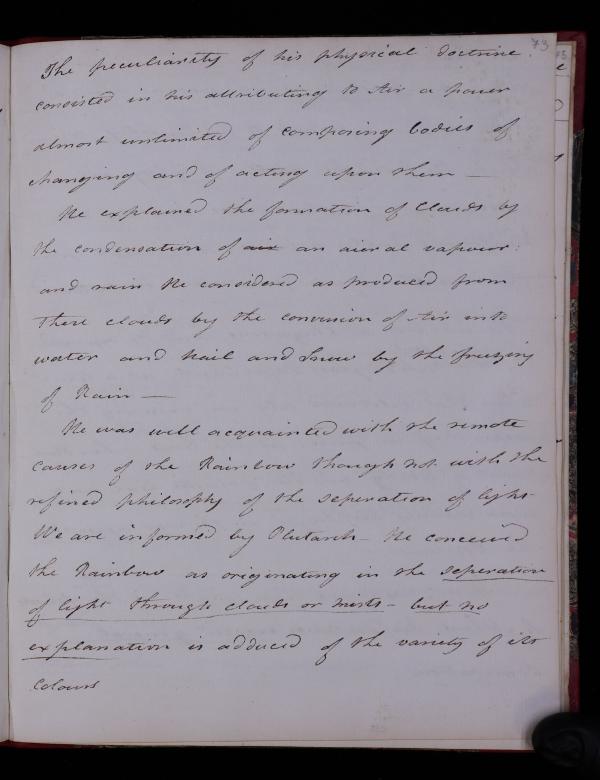 73
The peculiarity of his physical doctrine
consisted in his attributing to Air a power
almost unlimited of composing bodies of
changing and of acting upon them —
He explained the formation of Clouds by
the condensation of air an aieral vapour:
and rain He considered as produced from
These clouds by the conversion of Air into
water and Hail and Snow by the freezing
of Rain —
He was well acquainted with the remote
causes of the Rainbow though not with the
refined philosophy of the seperation of light
We are informed by Plutarch – He conceived
the Rainbow as originating in the seperation
of light through clouds or mists – but no
explanation is adduced of the variety of its
Colours